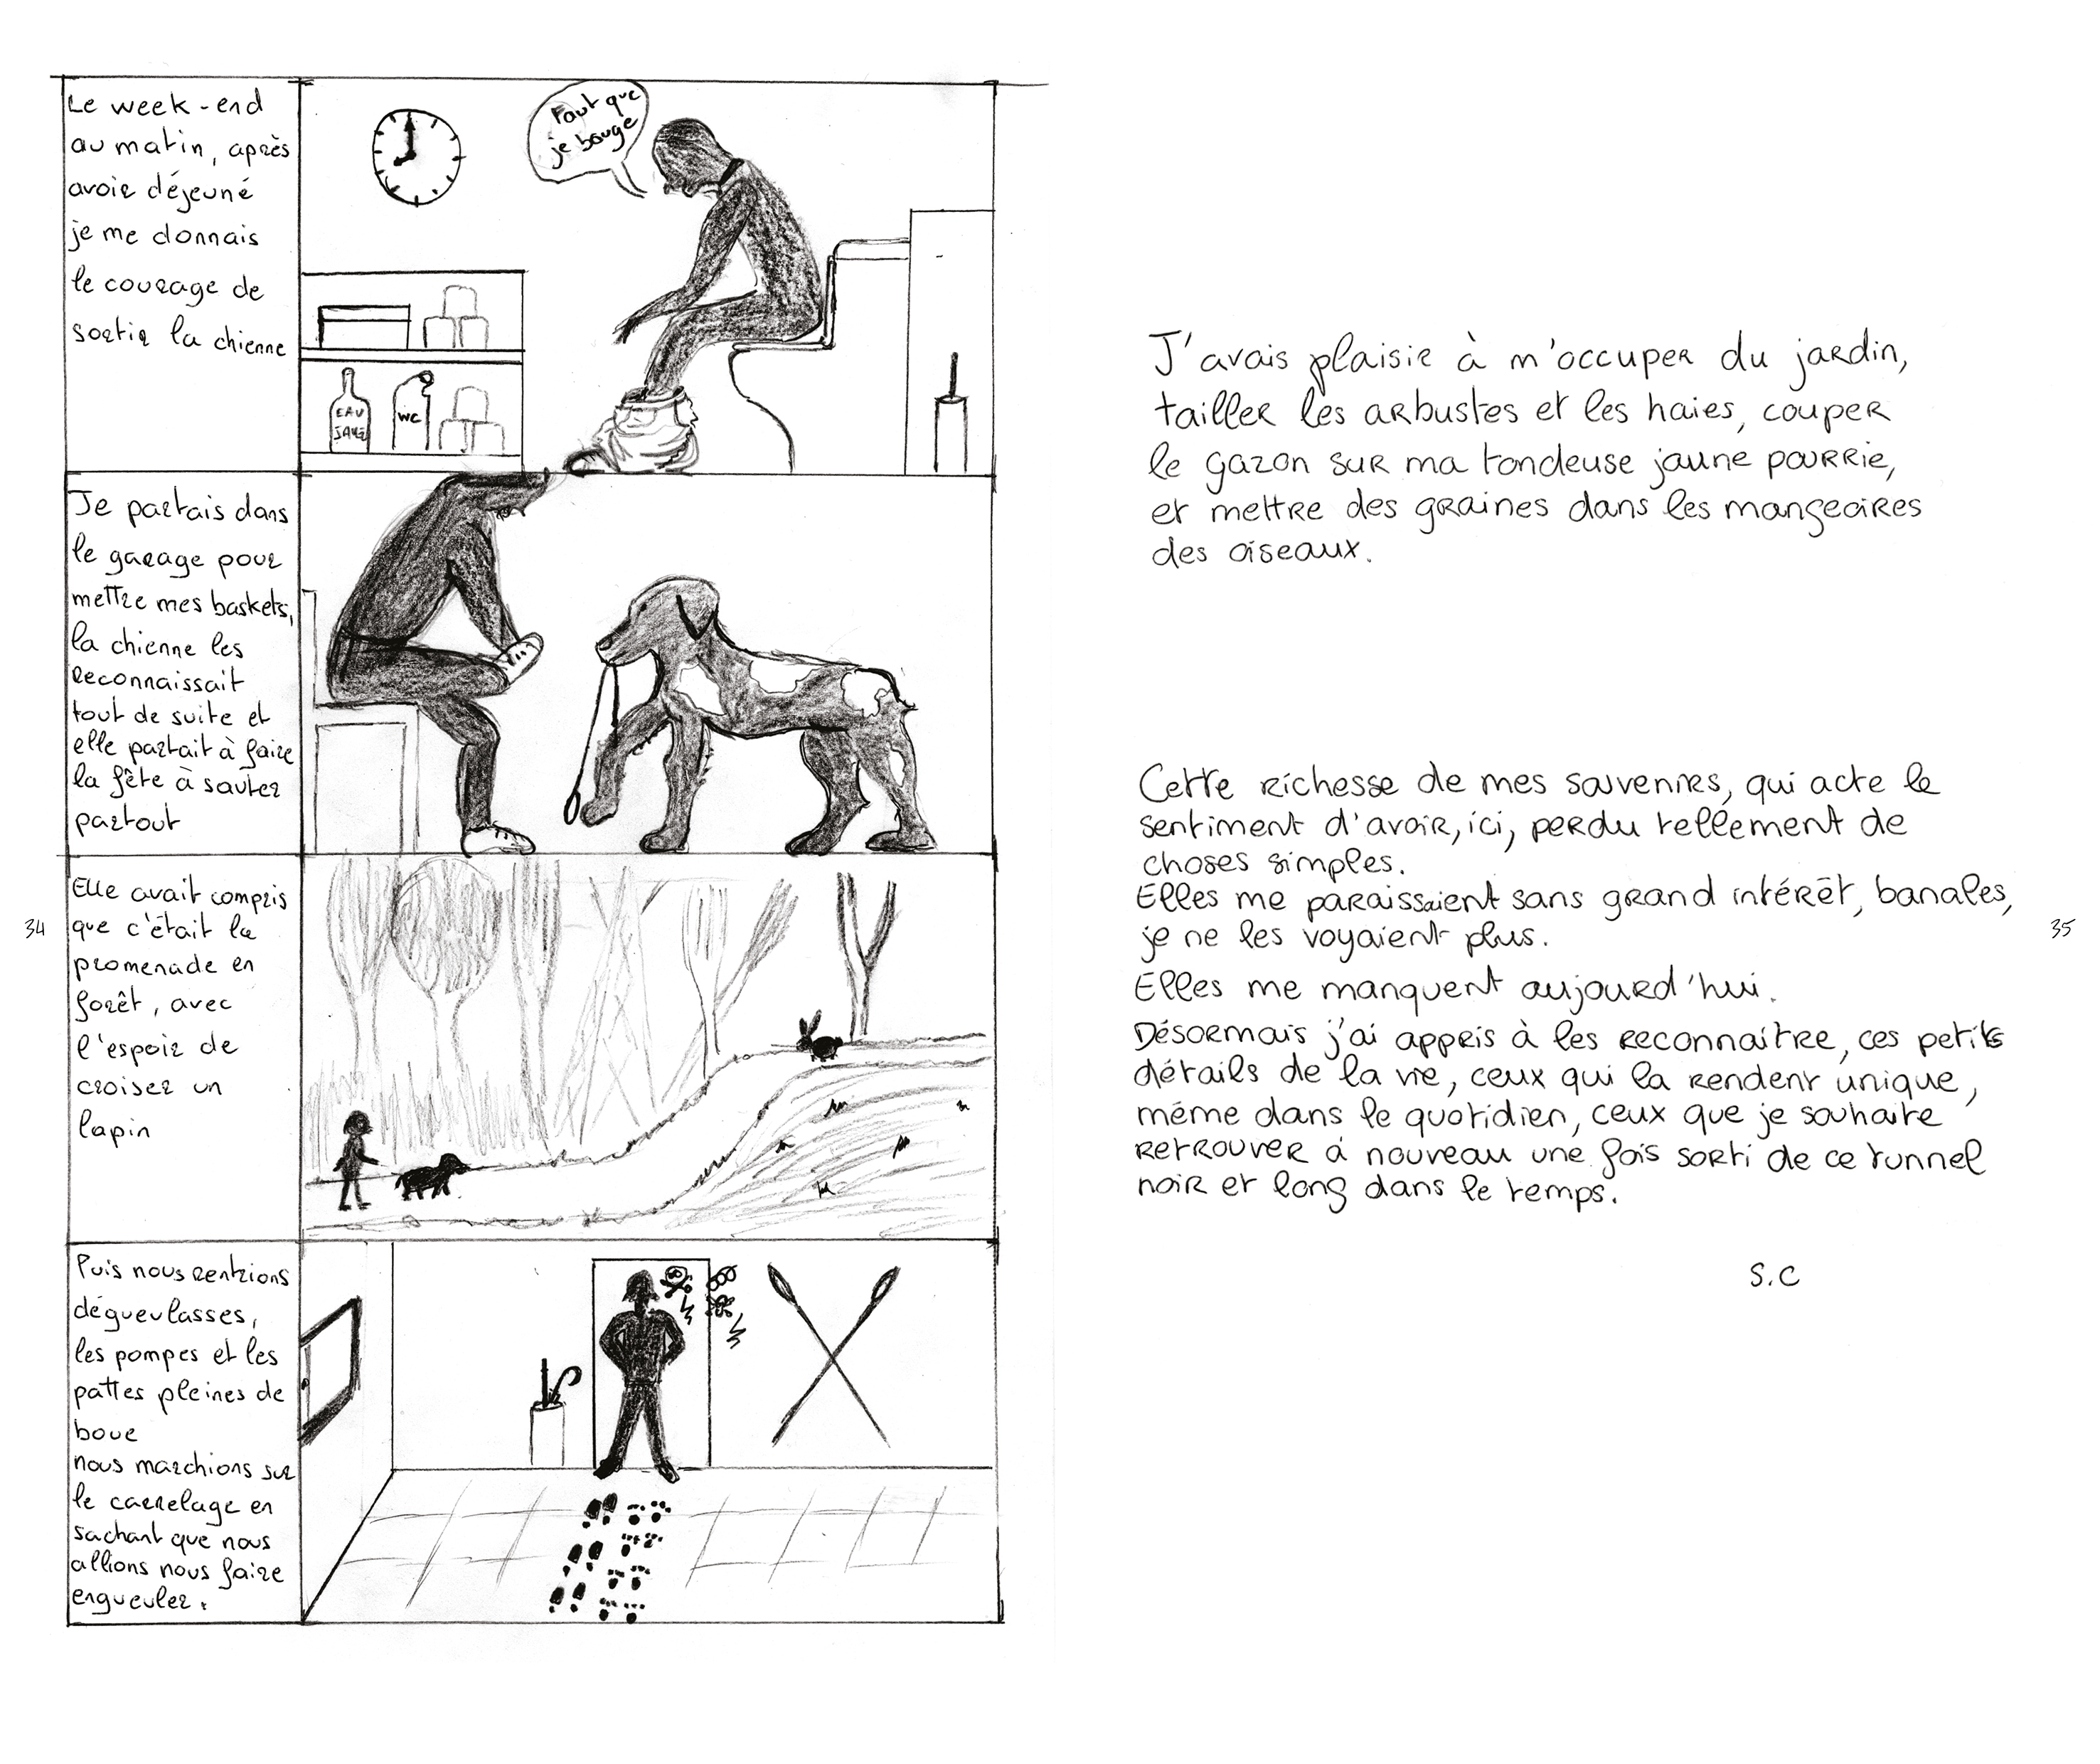 Le week-end
au matin, après
avoir déjeuné
je me donnais
le courage de
sortir la chienne
Faut que
je bouge
EAU
JAVEL
WC
Je partais dans
le garage pour
mettre mes baskets,
la chienne les
reconnaissait
tout de suite et
elle partait à faire
la fête à sauter
partout
Elle avait compris
que c'était la
promenade en
forêt, avec
l'espoir de
croiser un
lapin
34
Puis nous rentrions
dégueulasses,
les pompes et les
pattes pleines de
boue
nous marchions sur
le carrelage en
sachant que nous
allions nous faire
engueuler.
J'avais plaisir à m'occuper du jardin,
tailler les arbustes et les haies, couper
le gazon sur ma tondeuse jaune pourrie,
et mettre des graines dans les mangeoires
des oiseaux.
Cette richesse de mes souvenirs, qui acte le
sentiment d'avoir, ici, perdu tellement de
choses simples.
Elles me paraissaient sans grand intérêt, banales,
je ne les voyaient plus.
Elles me manquent aujourd'hui.
Désormais j'ai appris à les reconnaitre, ces petits
détails de la vie, ceux qui la rendent unique,
même dans le quotidien, ceux que je souhaite
retrouver à nouveau une fois sorti de ce tunnel
noir et long dans le temps.
S.C
35